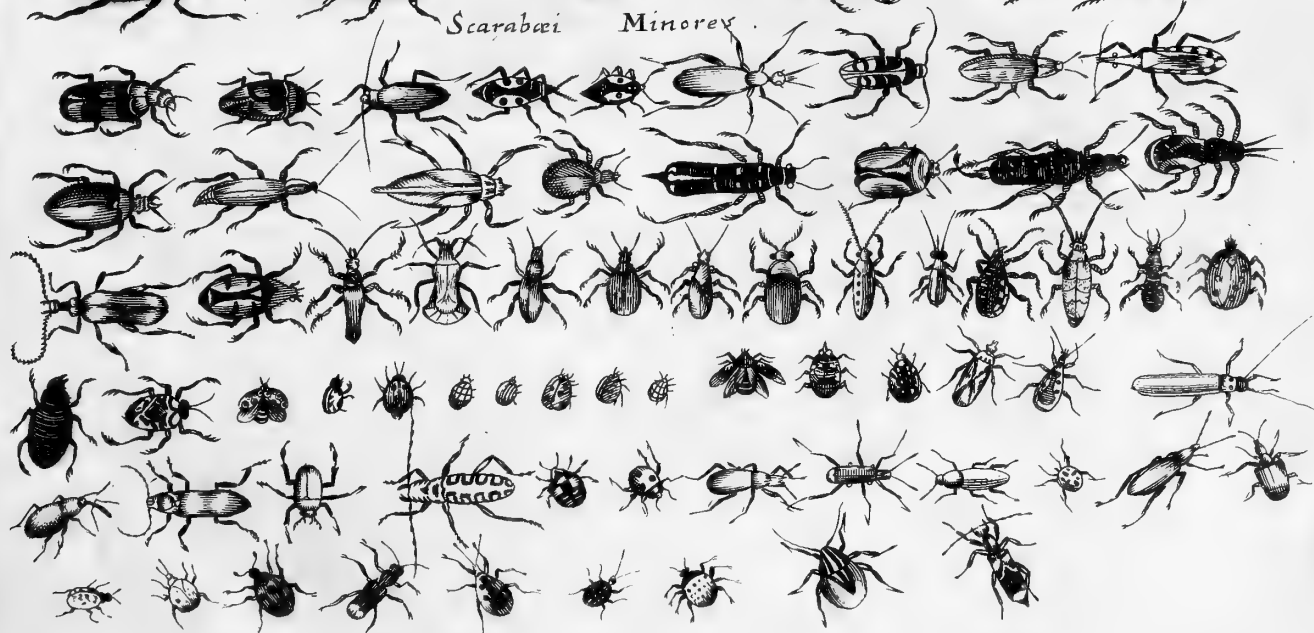 Scarabæi Minores.